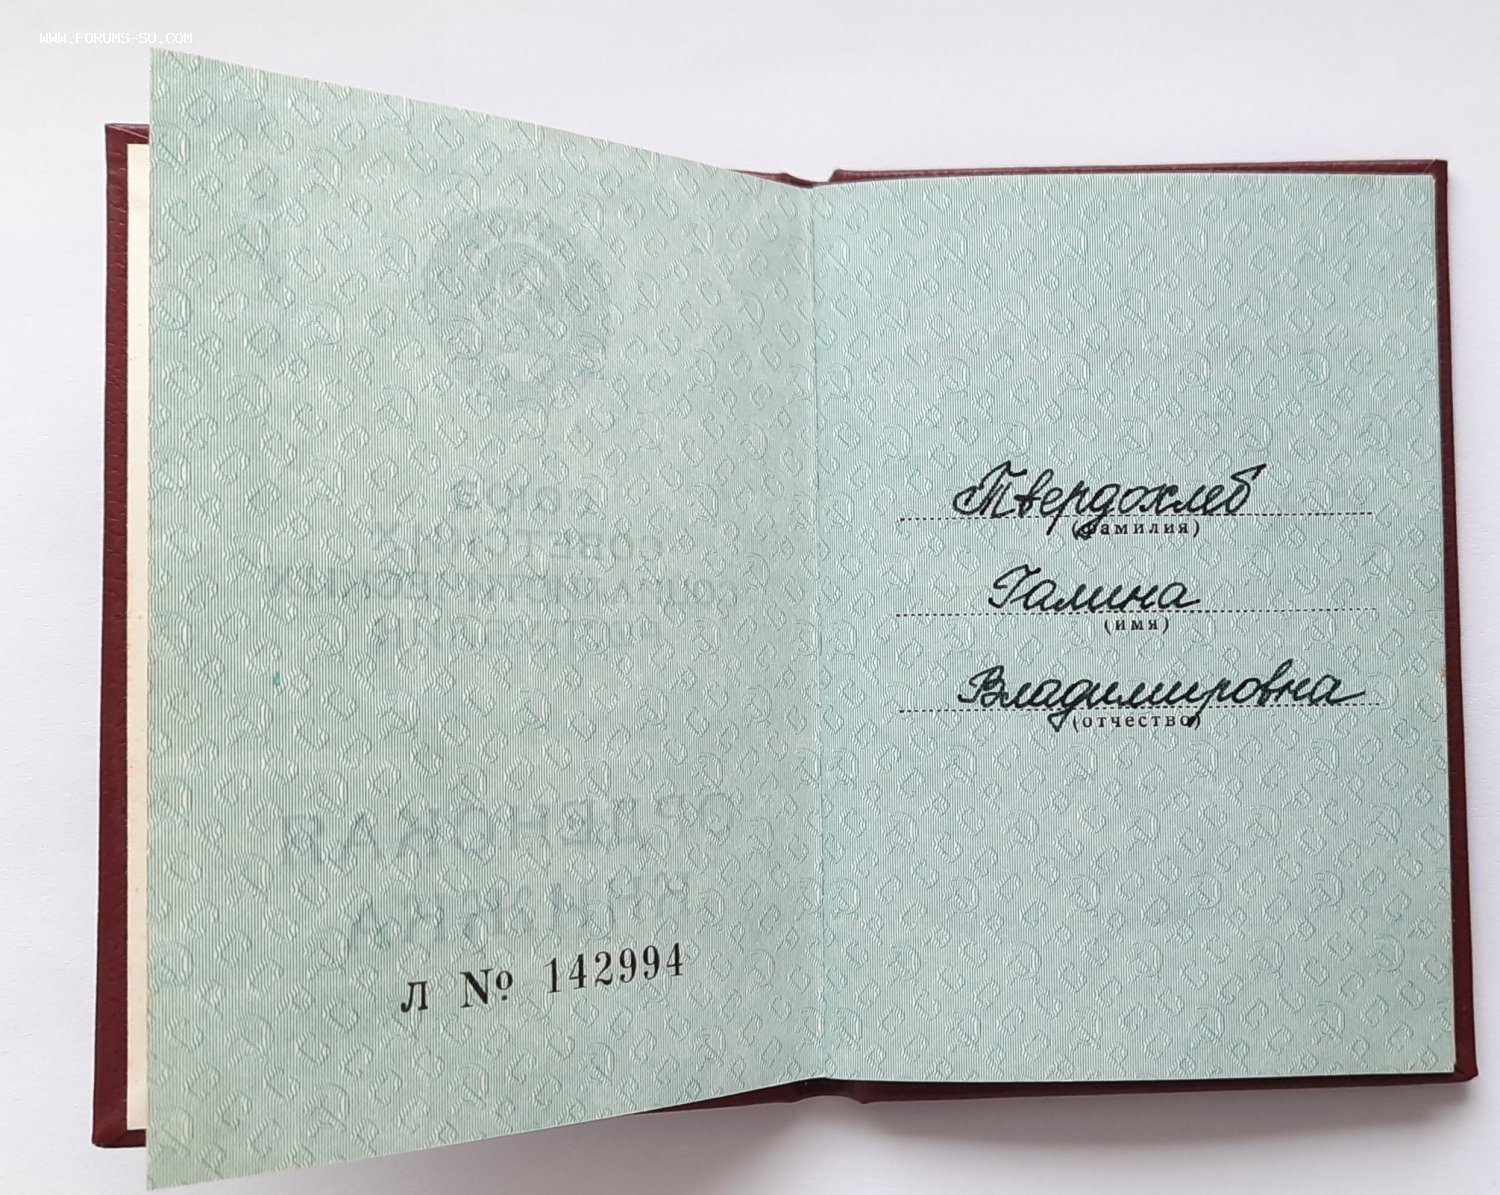 WWW.FORUMS-SU.COM
Л № 142994
Твердохлеб
(фамилия)
Галина
(имя)
Владимировна
(отчество)